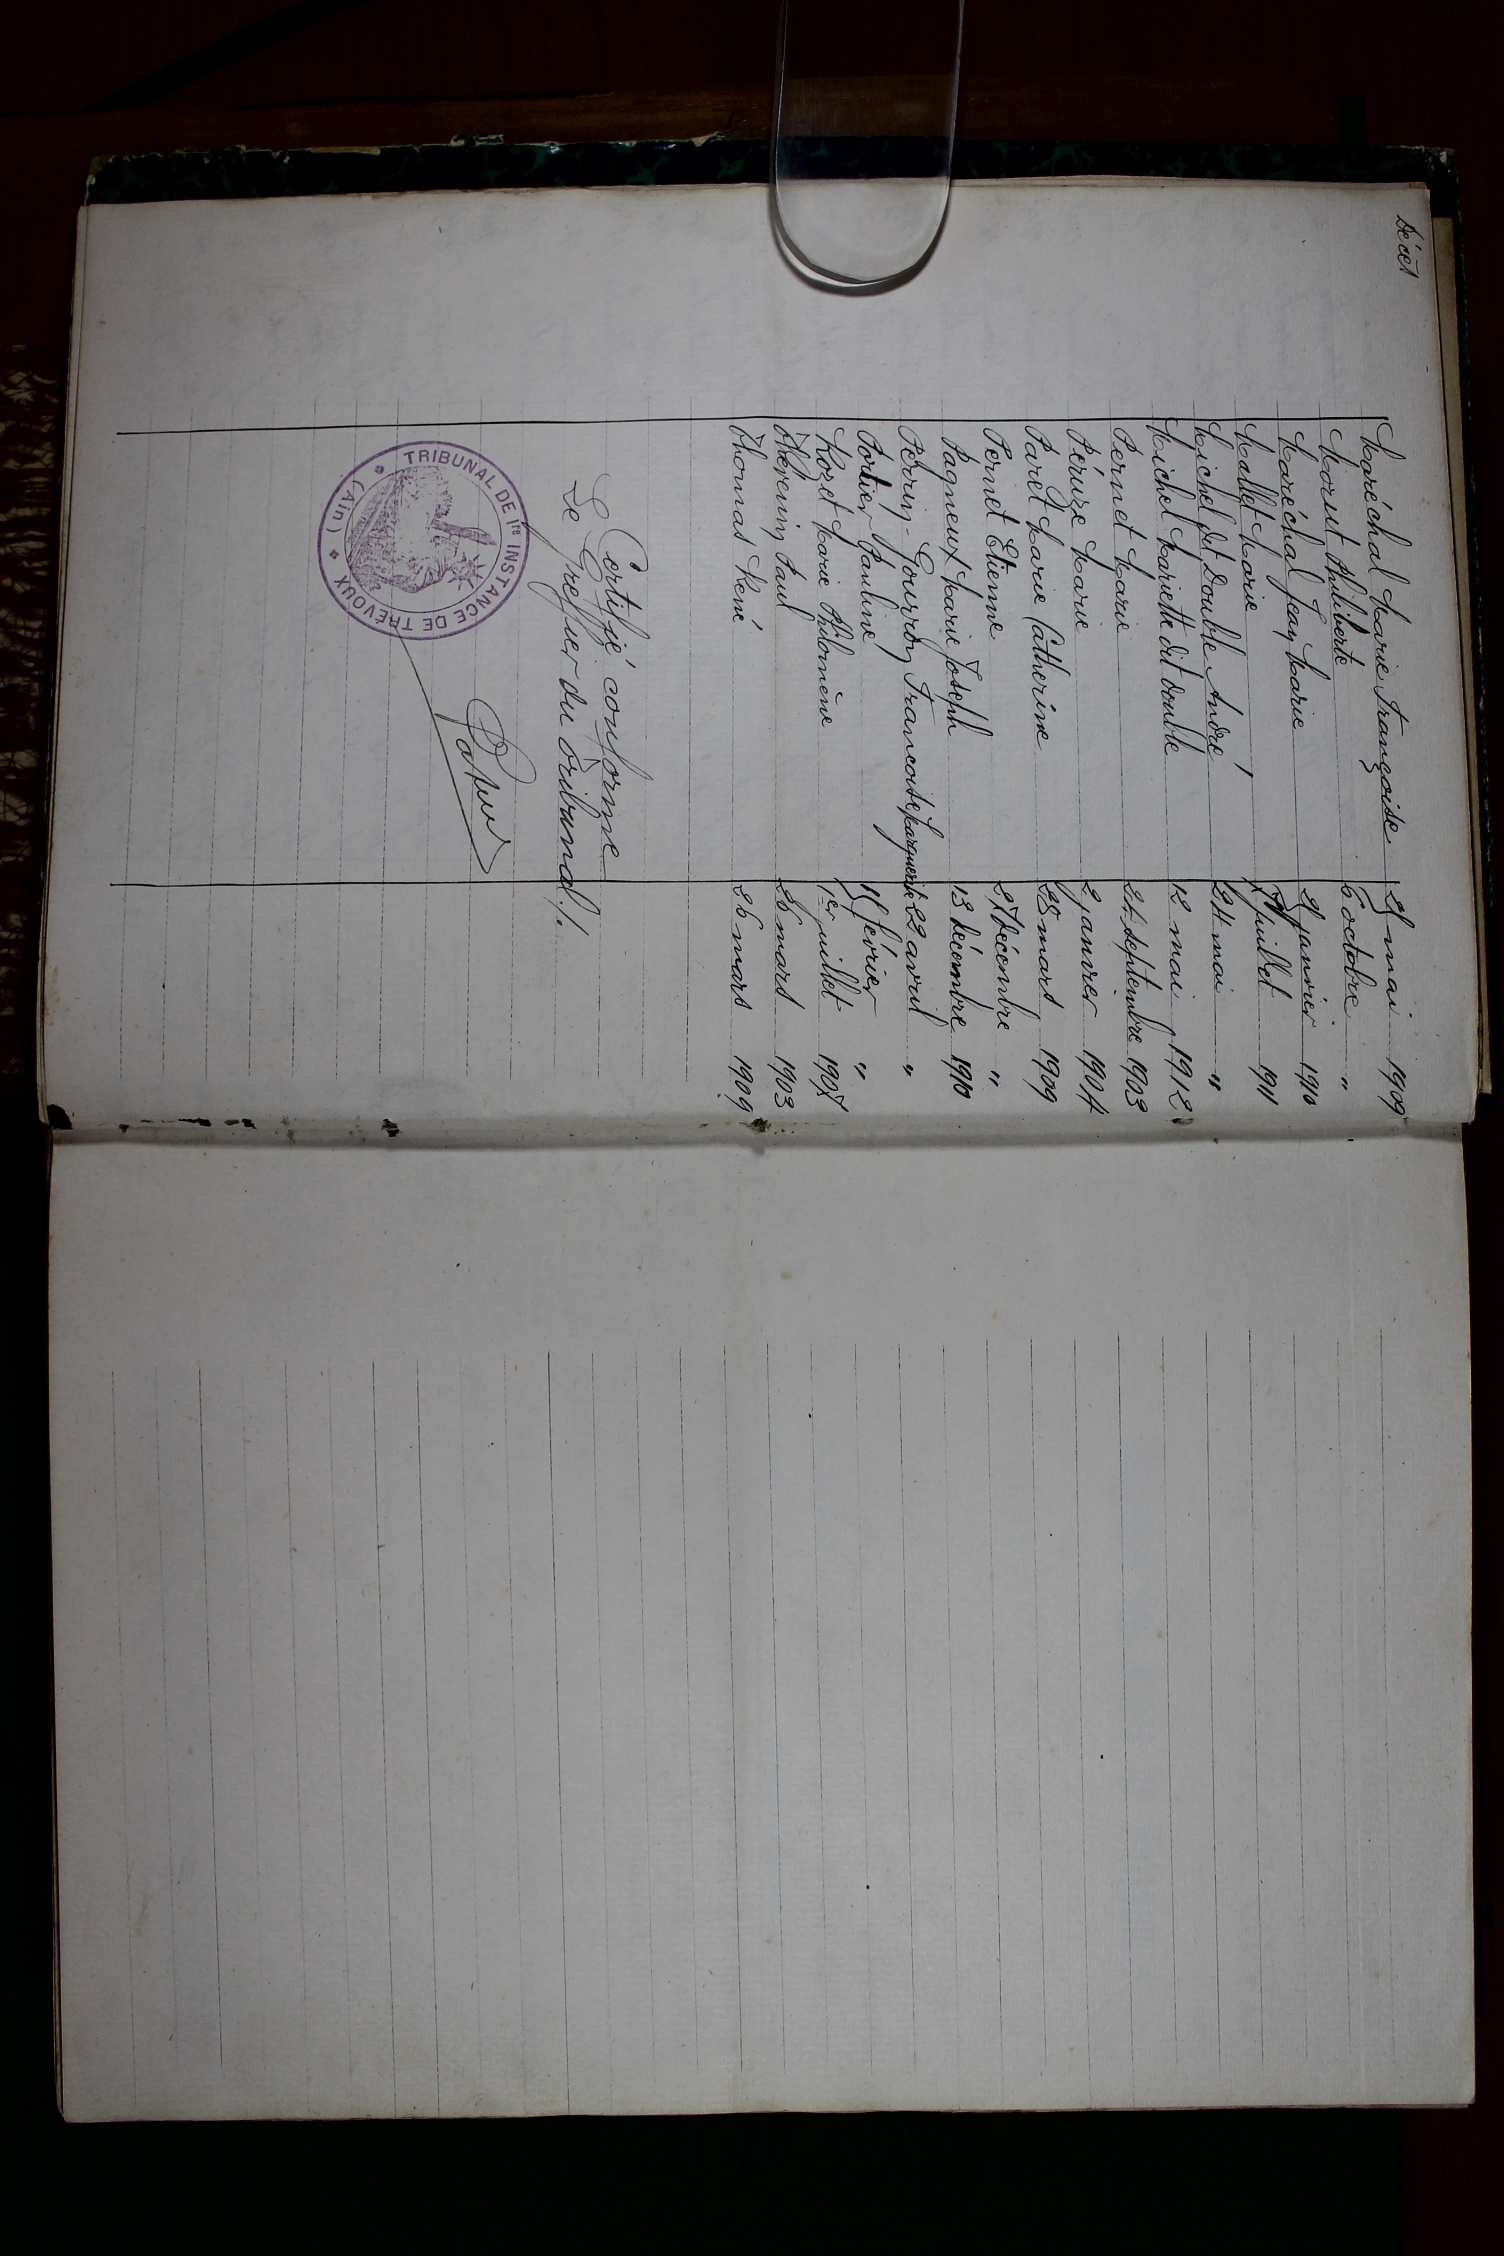 Décès
Maréchal Marie Françoise 25 mai 1909
Morut Philiberte 6 octobre "
Maréchal Jean Marie 21 janvier 1910
Mallet Marie 17 juillet 1911
Michel dit Double André 24 mai "
Michel Mariette dit Double 12 mai 1912
Pernet Marie 24 septembre 1903
Péruze Marie 2 janvier 1904
Paret Marie Catherine 25 mars 1909
Pernet Etienne 27 décembre "
Pagneux Marie Joseph 13 décembre 1910
Perrin-Gourron Francoise Marguerite 22 avril "
Portier Pauline 15 février "
Rozet Marie Philomène 1er juillet 1907
Thévenin Paul 26 mars 1903
Thomas René 26 mars 1909
Certifié conforme
Le Greffier du Tribunal ./.
TRIBUNAL DE 1re INSTANCE DE TRÉVOUX
(Ain)